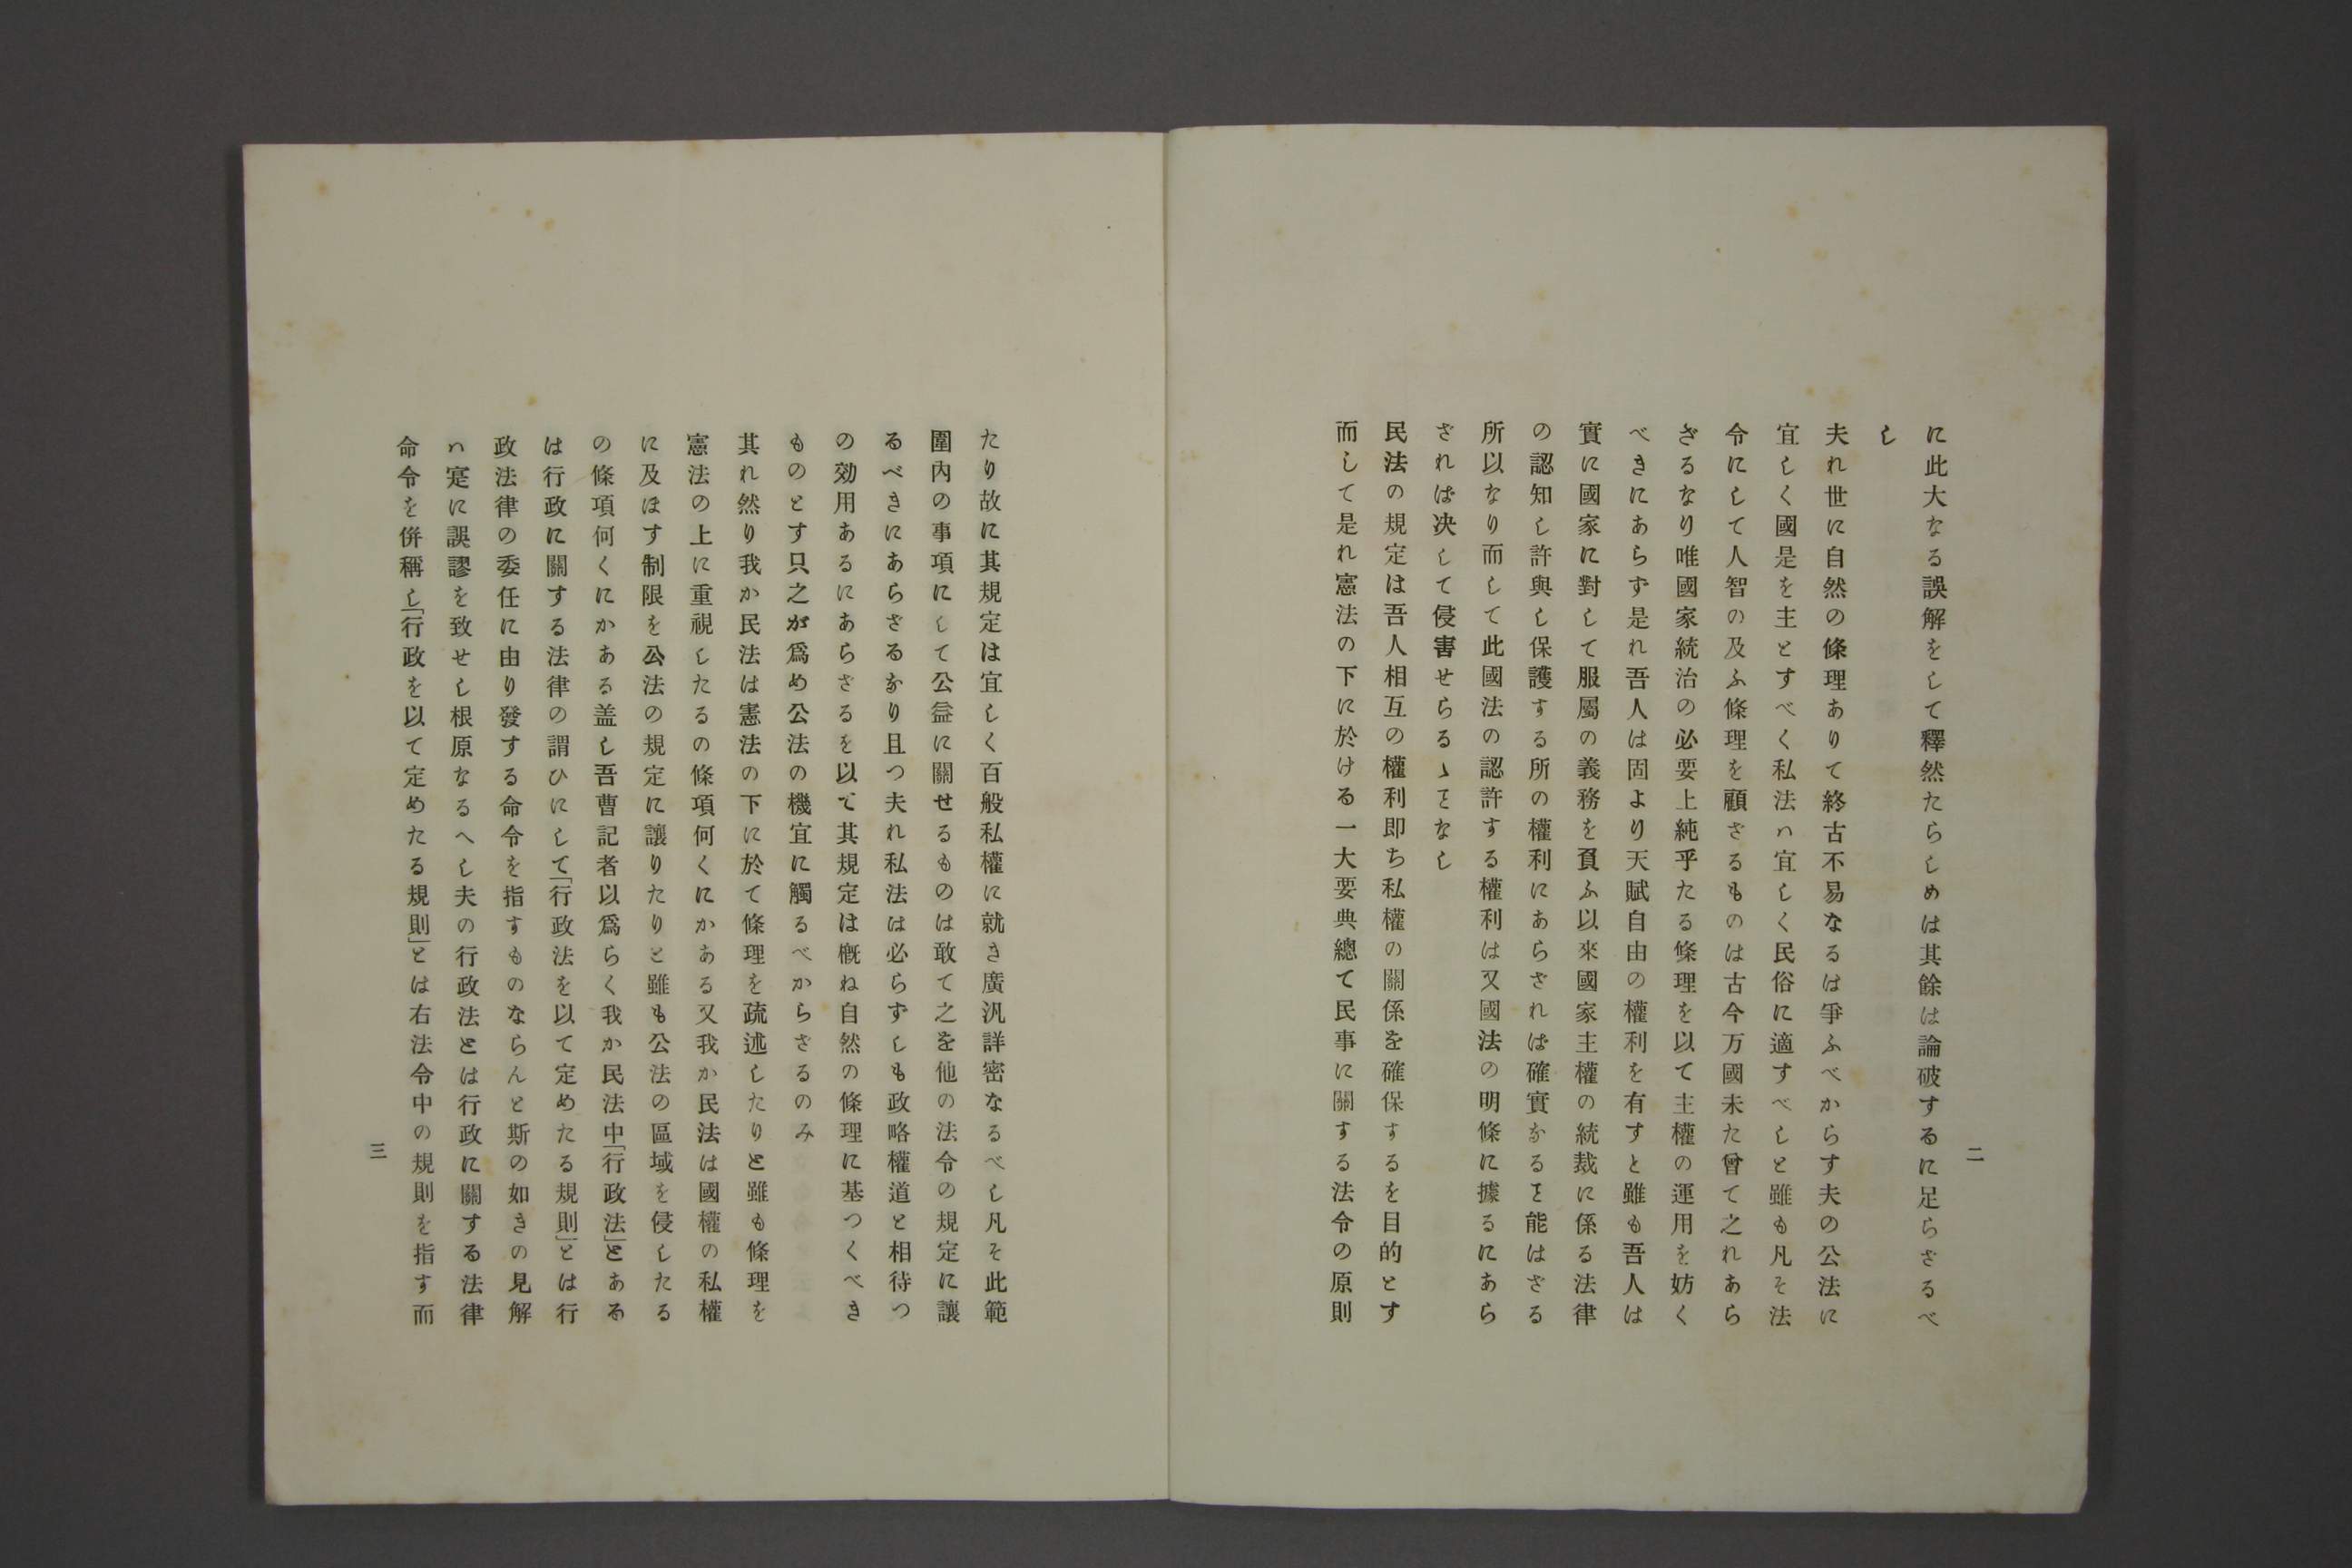 二
に此大なる誤解をして釋然たらしめは其餘は論破するに足らさるべ
し
夫れ世に自然の條理ありて終古不易なるは爭ふべからす夫の公法に
宜しく國是を主とすべく私法ハ宜しく民俗に適すべしと雖も凡そ法
令にして人智の及ふ條理を顧さるものは古今万國未た曾て之れあら
さるなり唯國家統治の必要上純乎たる條理を以て主權の運用を妨く
べきにあらず是れ吾人は固より天賦自由の權利を有すと雖も吾人は
實に國家に對して服屬の義務を負ふ以來國家主權の統裁に係る法律
の認知し許與し保護する所の權利にあらざれば確實なるヿ能はざる
所以なり而して此國法の認許する權利は又國法の明條に據るにあら
ざれば决して侵害せらるゝヿなし
民法の規定は吾人相互の權利即ち私權の關係を確保するを目的とす
而して是れ憲法の下に於ける一大要典總て民事に關する法令の原則
たり故に其規定は宜しく百般私權に就き廣汎詳密なるべし凡そ此範
圍內の事項にして公益に關せるものは敢て之を他の法令の規定に讓
るべきにあらさるなり且つ夫れ私法は必らずしも政略權道と相待つ
の効用あるにあらざるを以て其規定は槪ね自然の條理に基つくべき
ものとす只之が爲め公法の機宜に觸るべからざるのみ
其れ然り我か民法は憲法の下に於て條理を疏述したりと雖も條理を
憲法の上に重視したるの條項何くにかある又我か民法は國權の私權
に及ほす制限を公法の規定に讓りたりと雖も公法の區域を侵したる
の條項何くにかある盖し吾曹記者以爲らく我か民法中「行政法」とある
は行政に關する法律の謂ひにして「行政法を以て定めたる規則」とは行
政法律の委任に由り發する命令を指すものならんと斯の如きの見解
ハ寔に誤謬を致せし根原なるへし夫の行政法とは行政に關する法律
命令を倂稱し「行政を以て定めたる規則」とは右法令中の規則を指す而
三